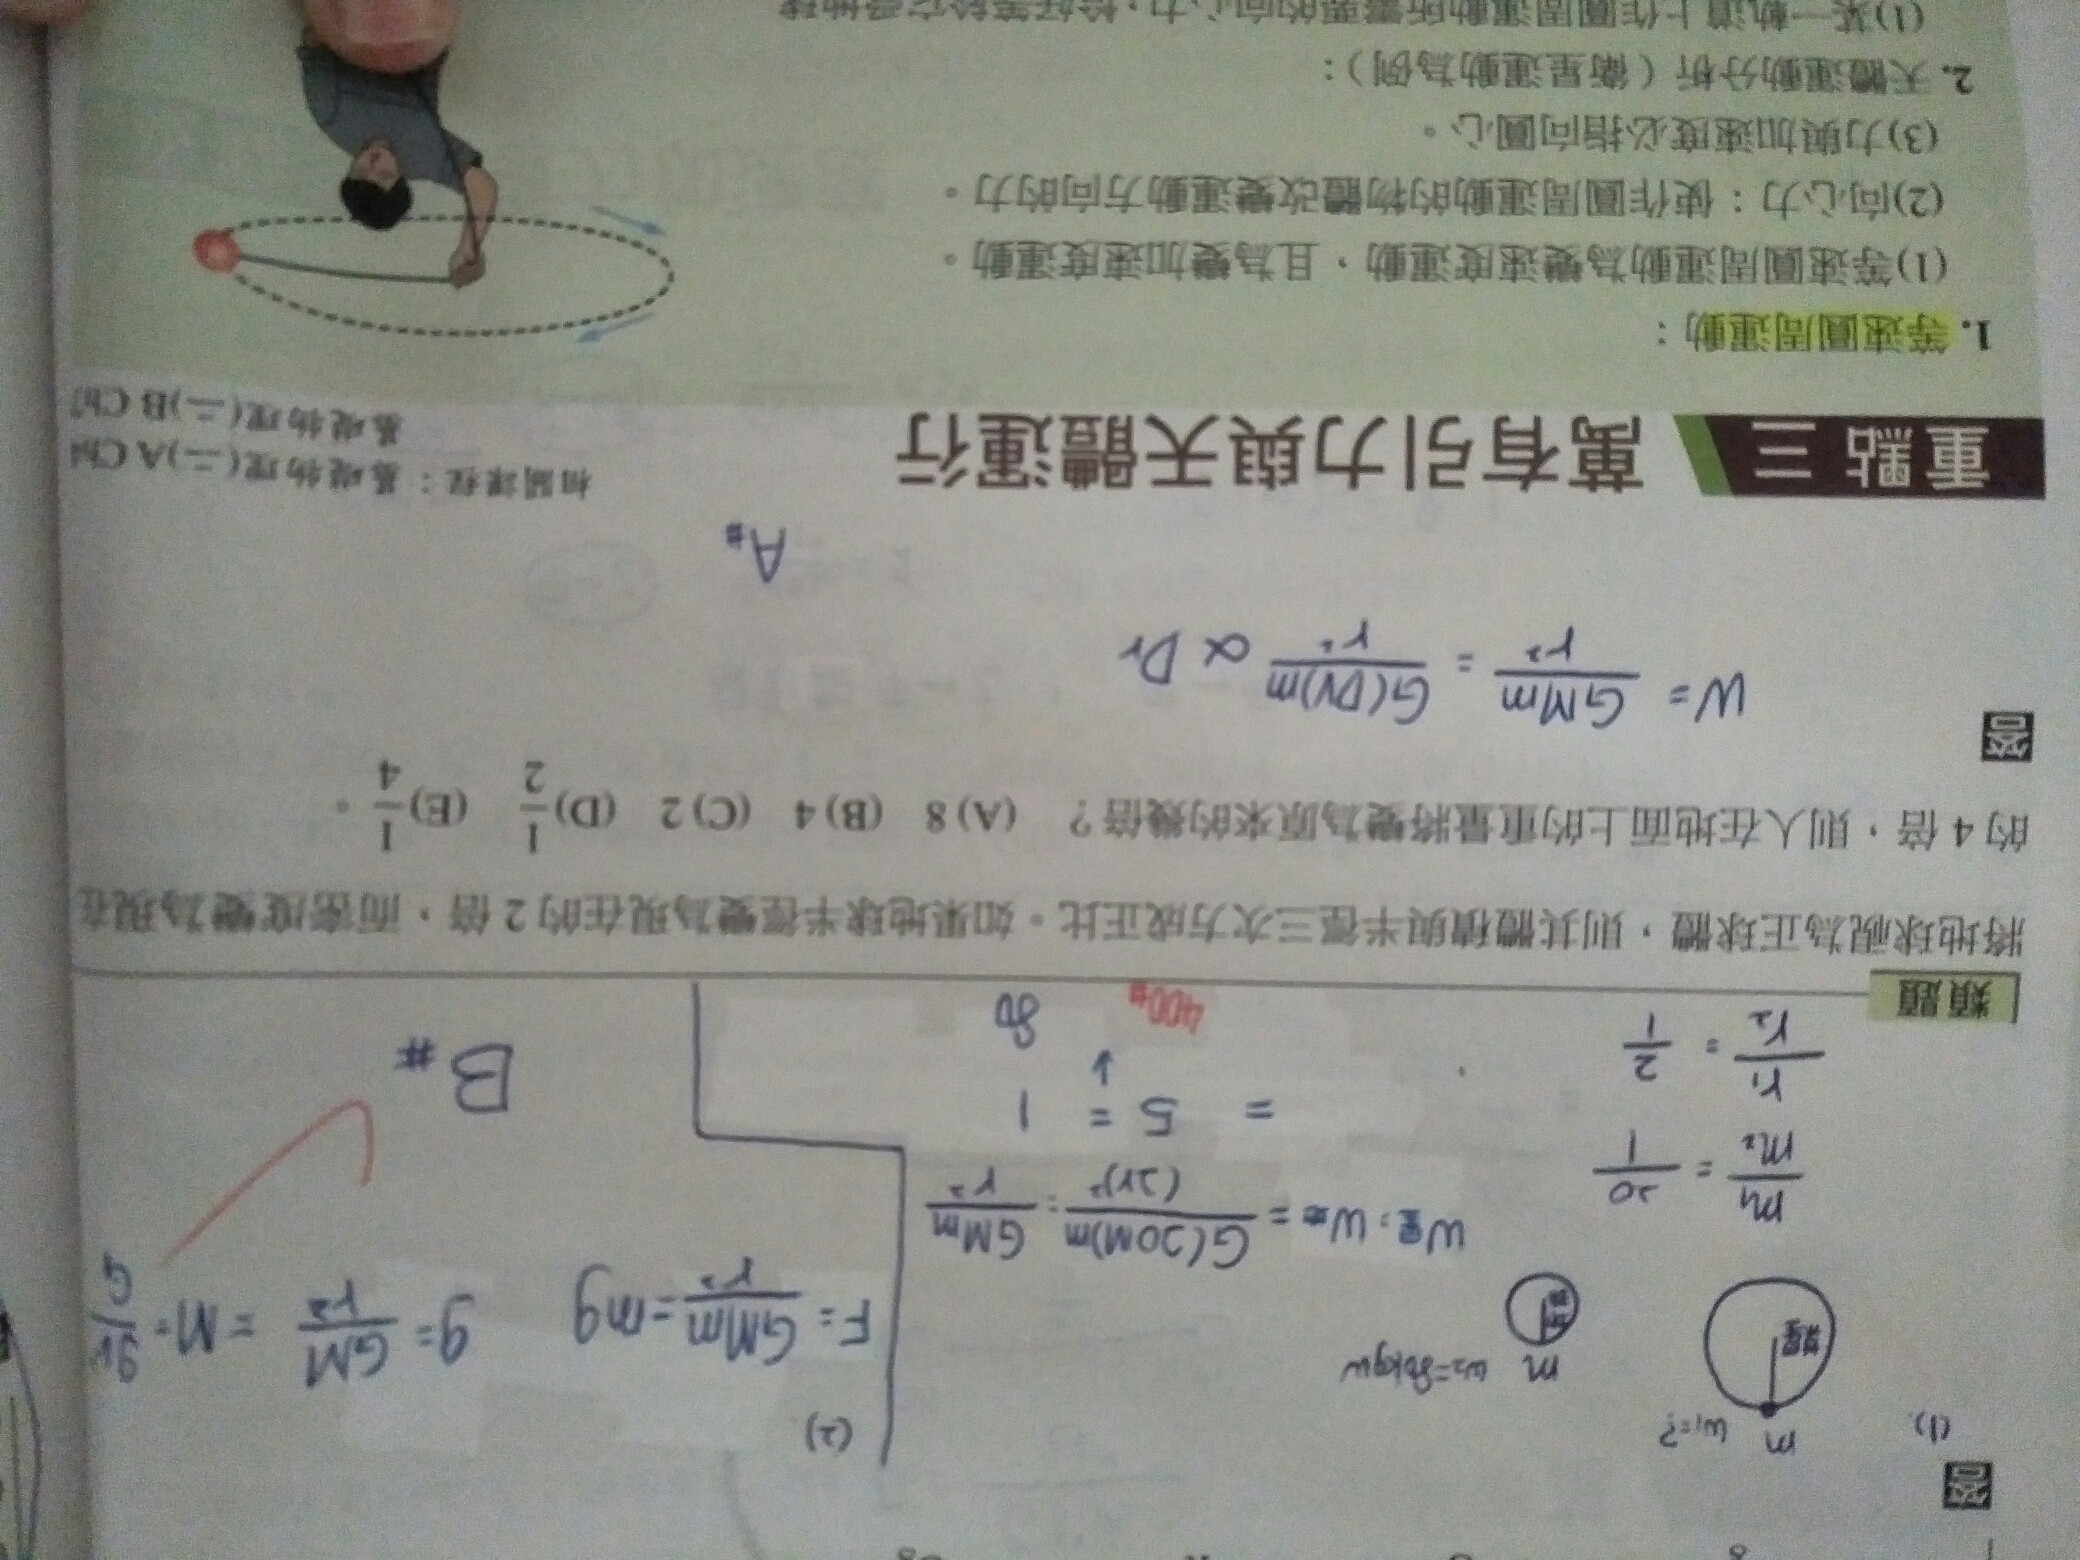 答
(1)
m W₁=?
m W₂=80kgw
m₁/m₂ = 20/1
r₁/r₂ = 2/1
= G(20M)m/(2r)² : GMm/r²
= 5 = 1
↓
400# 80
(2)
F= GMm/r² =mg g= GM/r² = M=
B#
類題
將地球視為正球體,則其體積與半徑三次方成正比。如果地球半徑變為現在的2倍,而密度變為現在
的4倍,則人在地面上的重量將變為原來的幾倍? (A) 8 (B) 4 (C) 2 (D) 1/2 (E) 1/4 。
答
W= GMm/r² = G(DV)m/r² ∝ Dr
A#
重點三 萬有引力與天體運行
相關課程:基礎物理(二)A Ch4
基礎物理(二)B Ch7
1. 等速圓周運動:
(1)等速圓周運動為變速度運動,且為變加速度運動。
(2)向心力:使作圓周運動的物體改變運動方向的力。
(3)力與加速度必指向圓心。
2. 天體運動分析(衛星運動為例):
(1)某一軌道上作圓周運動所需要的向心力,恰好等於它受地球